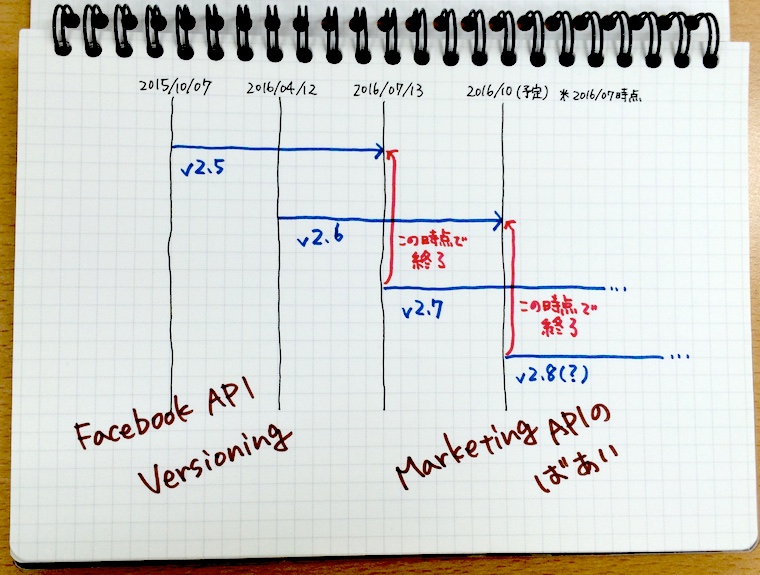 2015/10/07 2016/04/12 2016/07/13 2016/10 (予定) ※2016/07時点
v2.5
v2.6
この時点で
終了
v2.7
この時点で
終了
v2.8(?)
Facebook API
Versioning
Marketing APIの
ばあい